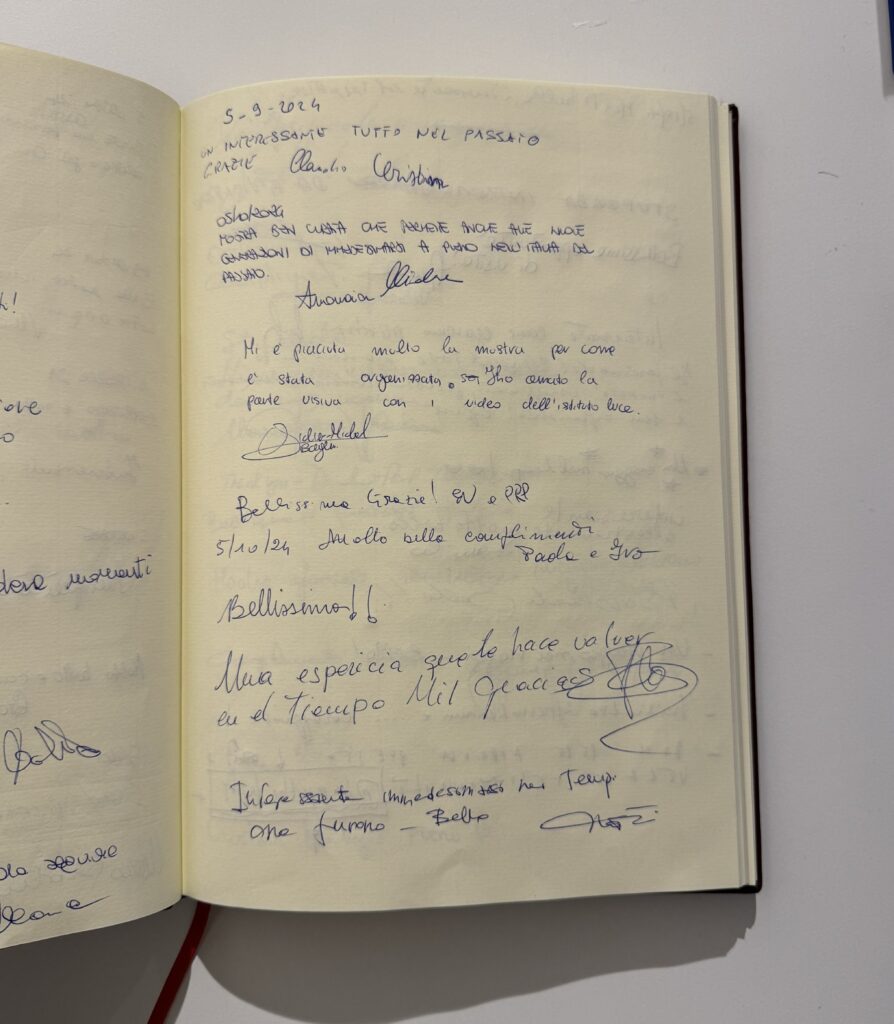 h!
ove
o
dere momenti
sequire
5-9-2024
UN INTERESSANTE TUTTO NEL PASSATO
GRAZIE Claudio Cristina
05/10/2024
MOSTRA BEN CURATA CHE PERMETE ANCHE ALLE NUOVE
GENERAZIONI DI IMMEDESIMARSI A PIENO NELL'ITALIA DEL
PASSATO.
Mi è piaciuta molto la mostra per come
è stata organissata. Ho amato la
parte visiva con i video dell'istituto luce.
Bellissima Grazie!
5/10/24 Molto bella complimenti
Paola e Ivo
Bellissimo!!
Una espericia que te hace valver
en el tiempo Mil gracias
Interessante immedesimarsi nei Tempi
che furono - Bello